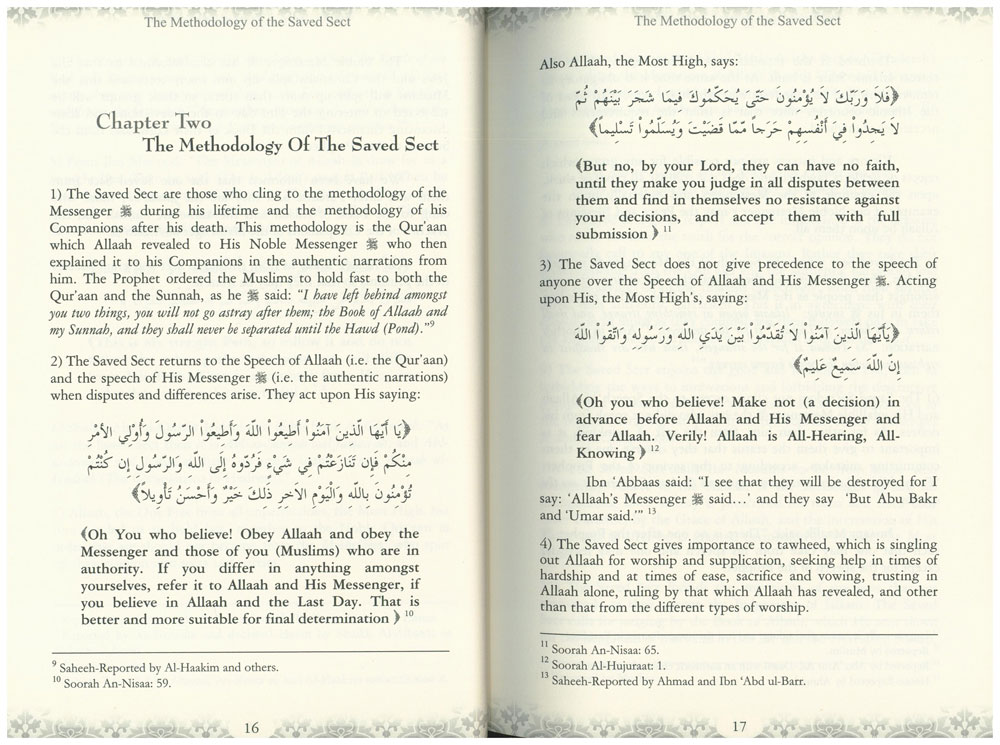 The Methodology of the Saved Sect
Chapter Two
The Methodology Of The Saved Sect
1) The Saved Sect are those who cling to the methodology of the
Messenger ﷺ during his lifetime and the methodology of his
Companions after his death. This methodology is the Qur'aan
which Allaah revealed to His Noble Messenger ﷺ who then
explained it to his Companions in the authentic narrations from
him. The Prophet ordered the Muslims to hold fast to both the
Qur'aan and the Sunnah, as he ﷺ said: “I have left behind amongst
you two things, you will not go astray after them; the Book of Allaah and
my Sunnah, and they shall never be separated until the Hawd (Pond).”9
2) The Saved Sect returns to the Speech of Allaah (i.e. the Qur'aan)
and the speech of His Messenger ﷺ (i.e. the authentic narrations)
when disputes and differences arise. They act upon His saying:
﴿يَا أَيُّهَا الَّذِينَ آمَنُواْ أَطِيعُواْ اللَّهَ وَأَطِيعُواْ الرَّسُولَ وَأُوْلِي الأَمْرِ
مِنْكُمْ فَإِن تَنَازَعْتُمْ فِي شَيْءٍ فَرُدُّوهُ إِلَى اللَّهِ وَالرَّسُولِ إِن كُنْتُمْ
تُؤْمِنُونَ بِاللَّهِ وَالْيَوْمِ الآخِرِ ذَلِكَ خَيْرٌ وَأَحْسَنُ تَأْوِيلاً﴾
﴾Oh You who believe! Obey Allaah and obey the
Messenger and those of you (Muslims) who are in
authority. If you differ in anything amongst
yourselves, refer it to Allaah and His Messenger, if
you believe in Allaah and the Last Day. That is
better and more suitable for final determination ﴿ 10
9 Saheeh-Reported by Al-Haakim and others.
10 Soorah An-Nisaa: 59.
16
The Methodology of the Saved Sect
Also Allaah, the Most High, says:
﴿فَلاَ وَرَبِّكَ لاَ يُؤْمِنُونَ حَتَّىَ يُحَكِّمُوكَ فِيمَا شَجَرَ بَيْنَهُمْ ثُمَّ
لاَ يَجِدُواْ فِي أَنْفُسِهِمْ حَرَجاً مِّمَّا قَضَيْتَ وَيُسَلِّمُواْ تَسْلِيماً﴾
﴾But no, by your Lord, they can have no faith,
until they make you judge in all disputes between
them and find in themselves no resistance against
your decisions, and accept them with full
submission ﴿ 11
3) The Saved Sect does not give precedence to the speech of
anyone over the Speech of Allaah and His Messenger ﷺ. Acting
upon His, the Most High's, saying:
﴿يَأَيُّهَا الَّذِينَ آمَنُواْ لاَ تُقَدِّمُواْ بَيْنَ يَدَيِ اللَّهِ وَرَسُولِهِ وَاتَّقُواْ اللَّهَ
إِنَّ اللَّهَ سَمِيعٌ عَلِيمٌ﴾
﴾Oh you who believe! Make not (a decision) in
advance before Allaah and His Messenger and
fear Allaah. Verily! Allaah is All-Hearing, All-
Knowing ﴿ 12
Ibn ‘Abbaas said: “I see that they will be destroyed for I
say: ‘Allaah's Messenger ﷺ said…’ and they say ‘But Abu Bakr
and ‘Umar said.’” 13
4) The Saved Sect gives importance to tawheed, which is singling
out Allaah for worship and supplication, seeking help in times of
hardship and at times of ease, sacrifice and vowing, trusting in
Allaah alone, ruling by that which Allaah has revealed, and other
than that from the different types of worship.
11 Soorah An-Nisaa: 65.
12 Soorah Al-Hujuraat: 1.
13 Saheeh-Reported by Ahmad and Ibn ‘Abd ul-Barr.
17